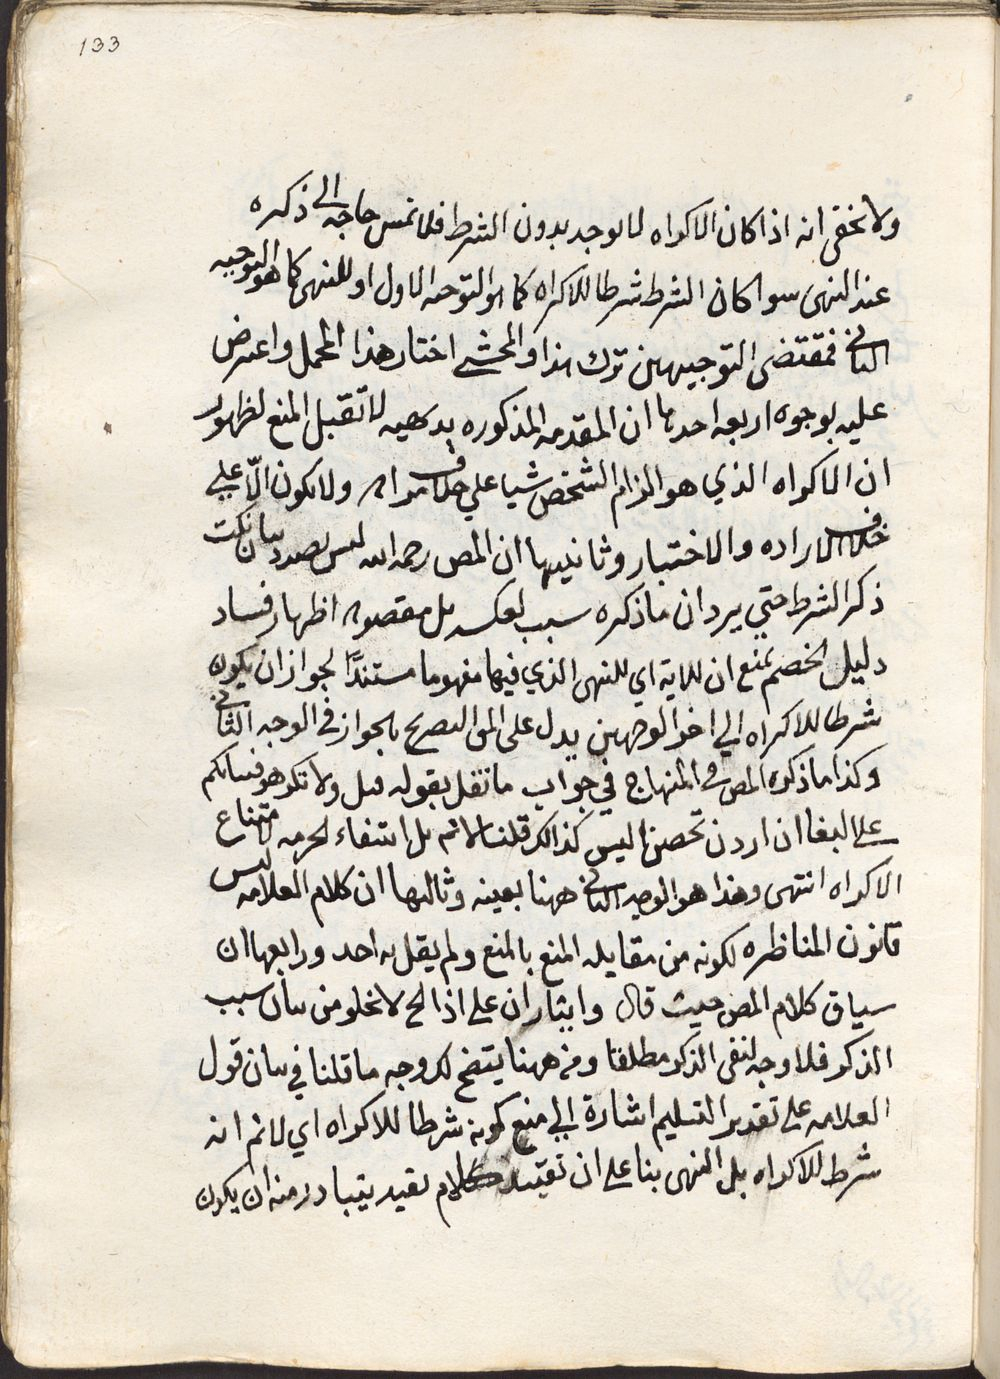 133
ولا يخفى انه اذا كان الاكراه لا يوجد بدون الشرط فلا تمس حاجه الى ذكره
عند النهى سوا كان الشرط شرطا للاكراه كما هو التوجه الاول او للنهى كما هو التوجيه
الثانى فمقتضى التوجيهين ترك هذا والمحشى اختار هذا المحمل واعترض
عليه بوجوه اربعه احدها ان المقدمه المذكوره بديهيه لا تقبل المنع لظهور
ان الاكراه الذي هو الزام الشخص شيا علي خلاف مرامه ولا يكون الّا على
خلاف الاراده والاختيار وثانيها ان المص رحمه الله ليس بصدد بيان نكت
ذكر الشرط حتي يرد ان ماذكره سبب لعكسه بل مقصوده اظهار فساد
دليل الخصم بمنع ان للاية اي للنهى الذي فيها مفهوما مستندًا لجواز ان يكون
شرطا للاكراه الي اخر الوجهين يدل على التصريح بالجواز في الوجه الثانى
وكذا ماذكره المص في المنهاج في جواب ما نقل بقوله قيل ولا تكرهوا فتياتكم
على البغا ان اردن تحصنا ليس كذالك قلنا لانم بل انتفاء الحرمه لامتناع
الاكراه انتهى وهذا هو الوجه الثانى ههنا بعينه وثالثها ان كلام العلامه ليس
قانون المناظره لكونه من مقابله المنع بالمنع ولم يقل به احد ورابعها ان
سياق كلام المص حيث قال وايثار ان على اذا الح لا يخلو من بيان سبب
الذكر فلا وجه لنفى الذكر مطلقا ومن ههنا يتضح لك وجه ما قلنا في بيان قول
العلامه على تقدير التسليم اشارة الي منع كونه شرطا للاكراه اي لانم انه
شرط للاكراه بل النهى بنا على ان تقييد كلام بقيد يتبادر منه ان يكون